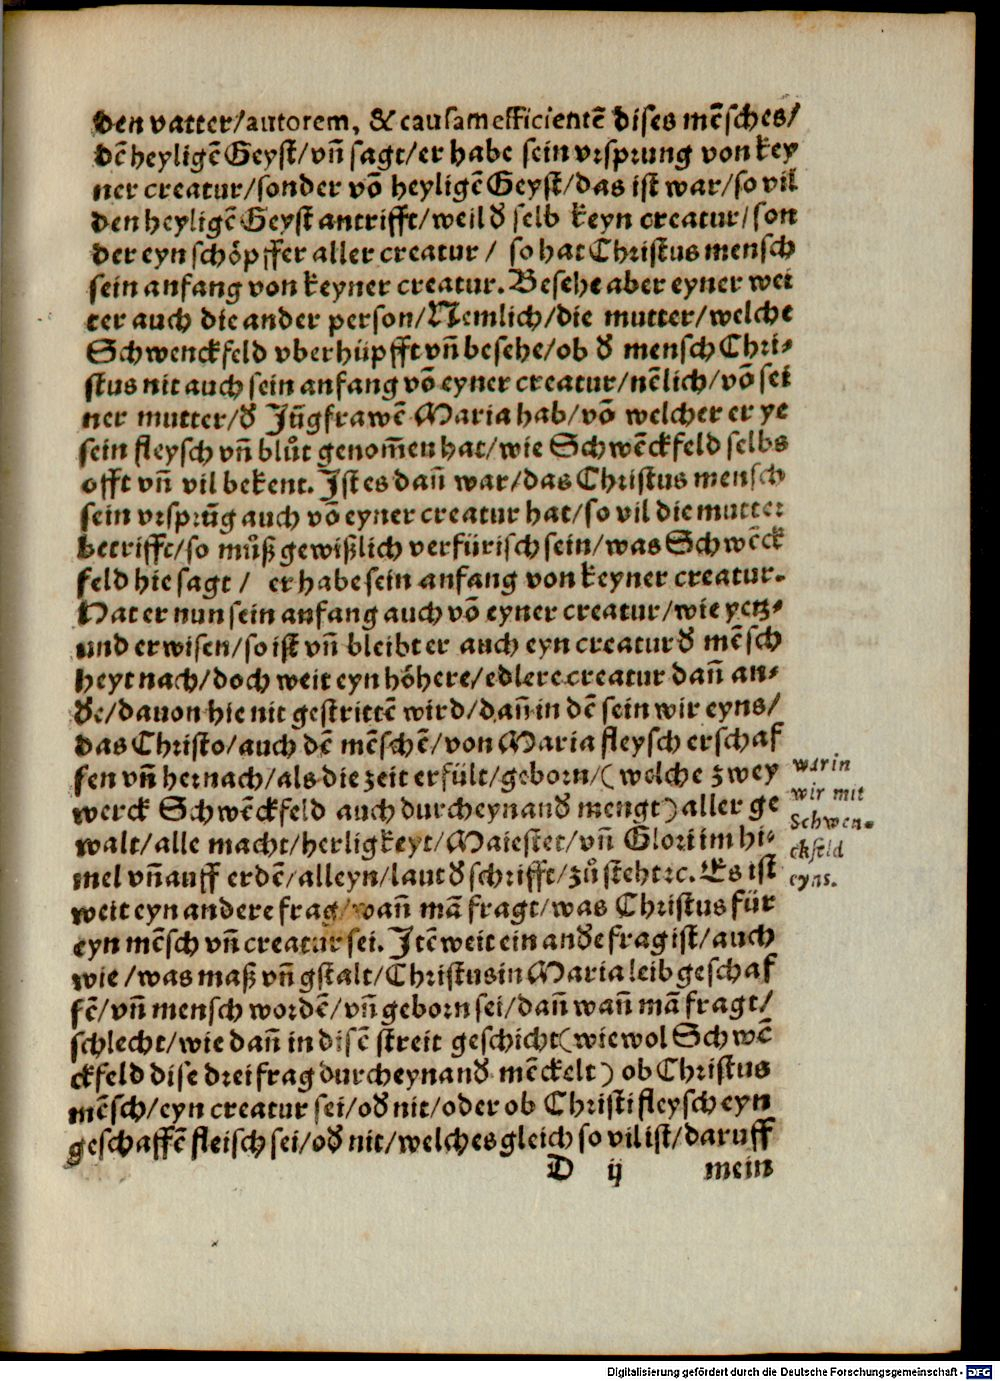 den vatter/autorem, & causam efficientē dises mēsches/
dē heyligē Geyst/vñ sagt/er habe sein vrsprung von key
ner creatur/sonder vō heyligē Geyst/das ist war/so vil
den heyligē Geyst antrifft/weil d̕ selb keyn creatur/son
der eyn schöpffer aller creatur / so hat Christus mensch
sein anfang von keyner creatur. Besehe aber eyner wei
ter auch die ander person/Nemlich/die mutter/welche
Schwenckfeld vberhüpfft vñ besehe/ob d̕ mensch Chri-
stus nit auch sein anfang vō eyner creatur/nēlich/vō sei
ner mutter/d̕ Jūgfrawē Maria hab/vō welcher er ye
sein fleysch vñ blůt genom̃en hat/wie Schwēckfeld selbs
offt vñ vil bekent. Ist es dañ war/das Christus mensch
sein vrsprūg auch vō eyner creatur hat/so vil die mutter
betrifft/so můß gewißlich verfürisch sein/was Schwēck
feld hie sagt / er habe sein anfang von keyner creatur.
Hat er nun sein anfang auch vō eyner creatur/wie yetz-
und erwisen/so ist vñ bleibt er auch eyn creatur d̕ mēsch
heyt nach/doch weit eyn höhere/edlere creatur dañ an-
d̕e/dauon hie nit gestrittē wird/dañ in dē sein wir eyns/
das Christo/auch dē mēschē/von Maria fleysch erschaf
fen vñ hernach/als die zeit erfült/geborn/(welche zwey
werck Schwēckfeld auch durcheynand̕ mengt) aller ge
walt/alle macht/herligkeyt/Maiestet/vñ Glori im hi-
mel vñ auff erdē/alleyn/laut d̕ schrifft/zů steht ꝛc. Es ist
weit eyn andere frag/wañ mā fragt/was Christus für
eyn mēsch vñ creatur sei. Jtē weit ein and̕e frag ist/auch
wie/was maß vñ gstalt/Christus in Maria leib geschaf
fē/vñ mensch wordē/vñ geborn sei/dañ wañ mā fragt/
schlecht/wie dañ in disē streit geschicht(wiewol Schwē
ckfeld dise drei frag durcheynand̕ mēckelt) ob Christus
mēsch/eyn creatur sei/od̕ nit/oder ob Christi fleysch eyn
geschaffē fleisch sei/od̕ nit/welches gleich so vil ist/daruff
D ij mein
warin
wir mit
Schwen-
ckfeld
eyns.
Digitalisierung gefördert durch die Deutsche Forschungsgemeinschaft - DFG